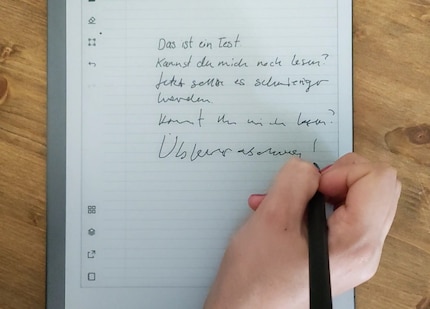 Das ist ein Test.
Kannst du mich noch lesen?
Jetzt sollte es schwieriger
werden.
Kannst du mich lesen?